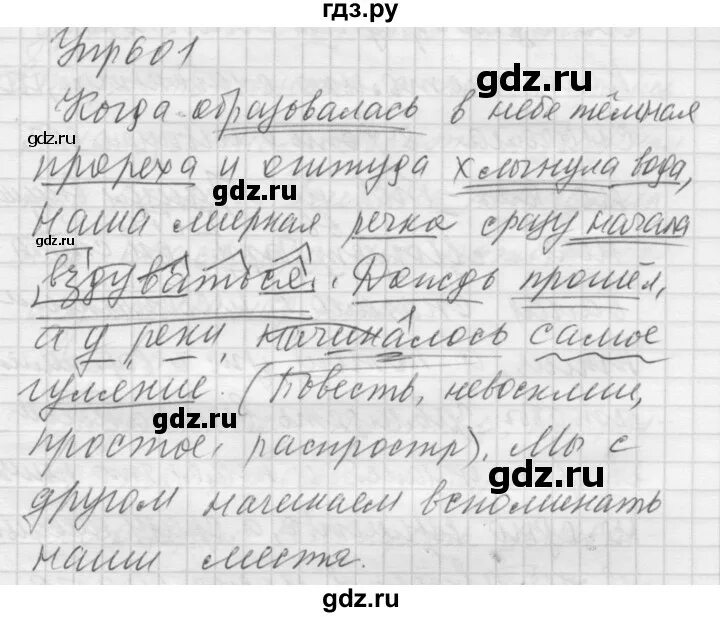 гдз.ру
Упр601
Когда образовалась в небе тёмная
gdz.ru
прореха и оттуда хлынула вода,
gdz.ru
наша мирная речка сразу начала
gdz.ru
gdz.ru
вздуваться. Дождь прошёл,
а у реки начиналось самое
gdz.ru
гуляние. (Повесть, невосклиц,
gdz.ru
простое, распростр). Мы с
gdz.ru
другом начинаем вспоминать
gdz.ru
наши места.
gdz.ru
gdz.ru